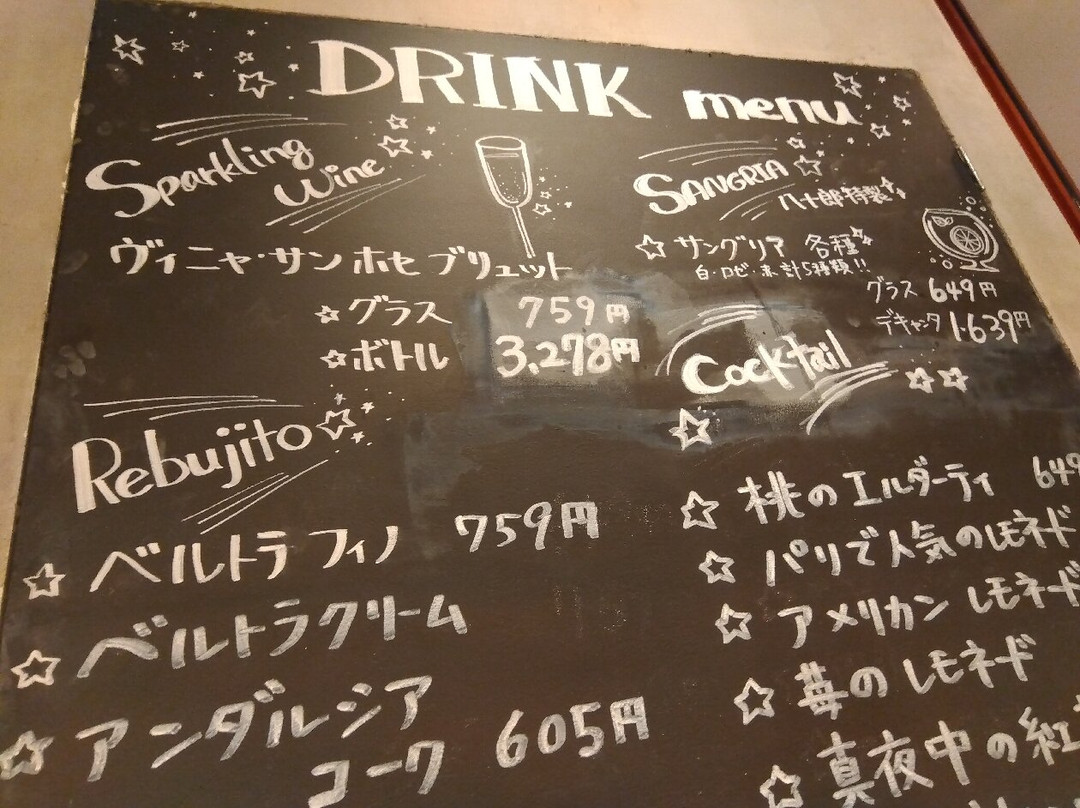 DRINK menu
Sparkling
Wine
ヴィニャ・サン ホセ ブリュット
☆グラス 759円
☆ボトル 3,278円
Rebujito
☆ベルトラ フィノ 759円
☆ベルトラクリーム
☆アンダルシア
コーク 605円
SANGRIA
八十郎特製
☆サングリア 各種
白・ロゼ・赤 計5種類!!
グラス 649円
デキャンタ 1,639円
Cocktail
☆桃のエルダーティ 649
☆パリで人気のレモネード
☆アメリカン レモネード
☆苺のレモネード
☆真夜中の紅